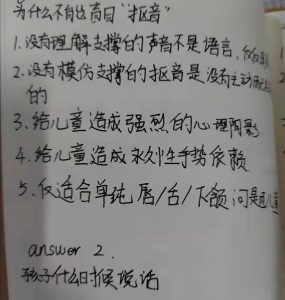 为什么不能盲目"抠音"
1.没有理解支撑的声音不是语言、仅仅
2.没有模仿支撑的抠音是没有主动
的
3、给儿童造成强烈的心理阴影
4、给儿童造成永久性手势依赖
5、仅适合单纯唇/舌/下颌问题儿童
answer 2.
孩子什么时候说话